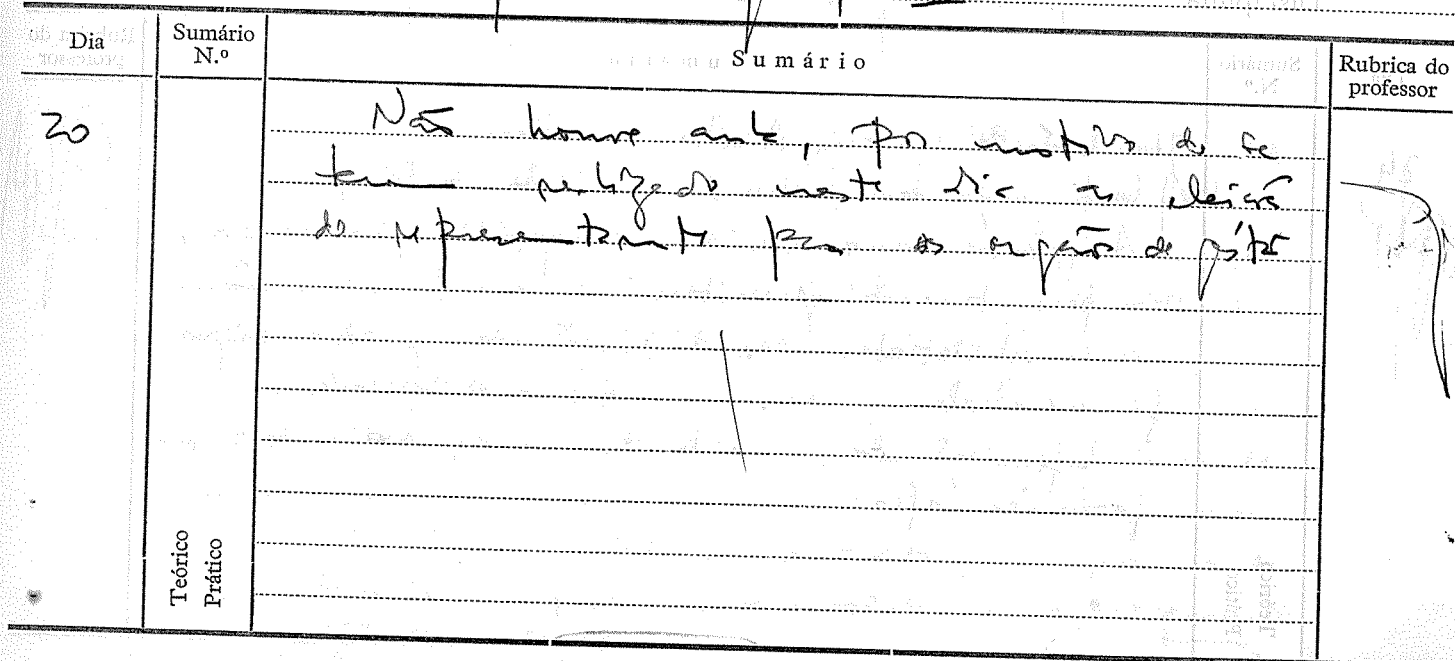 Dia
Sumário N.º
Sumário
Rubrica do professor
20
Não houve aula, por motivo de se
terem realizado neste dia as eleições
de representantes para os orgãos de gestão
Teórico
Prático